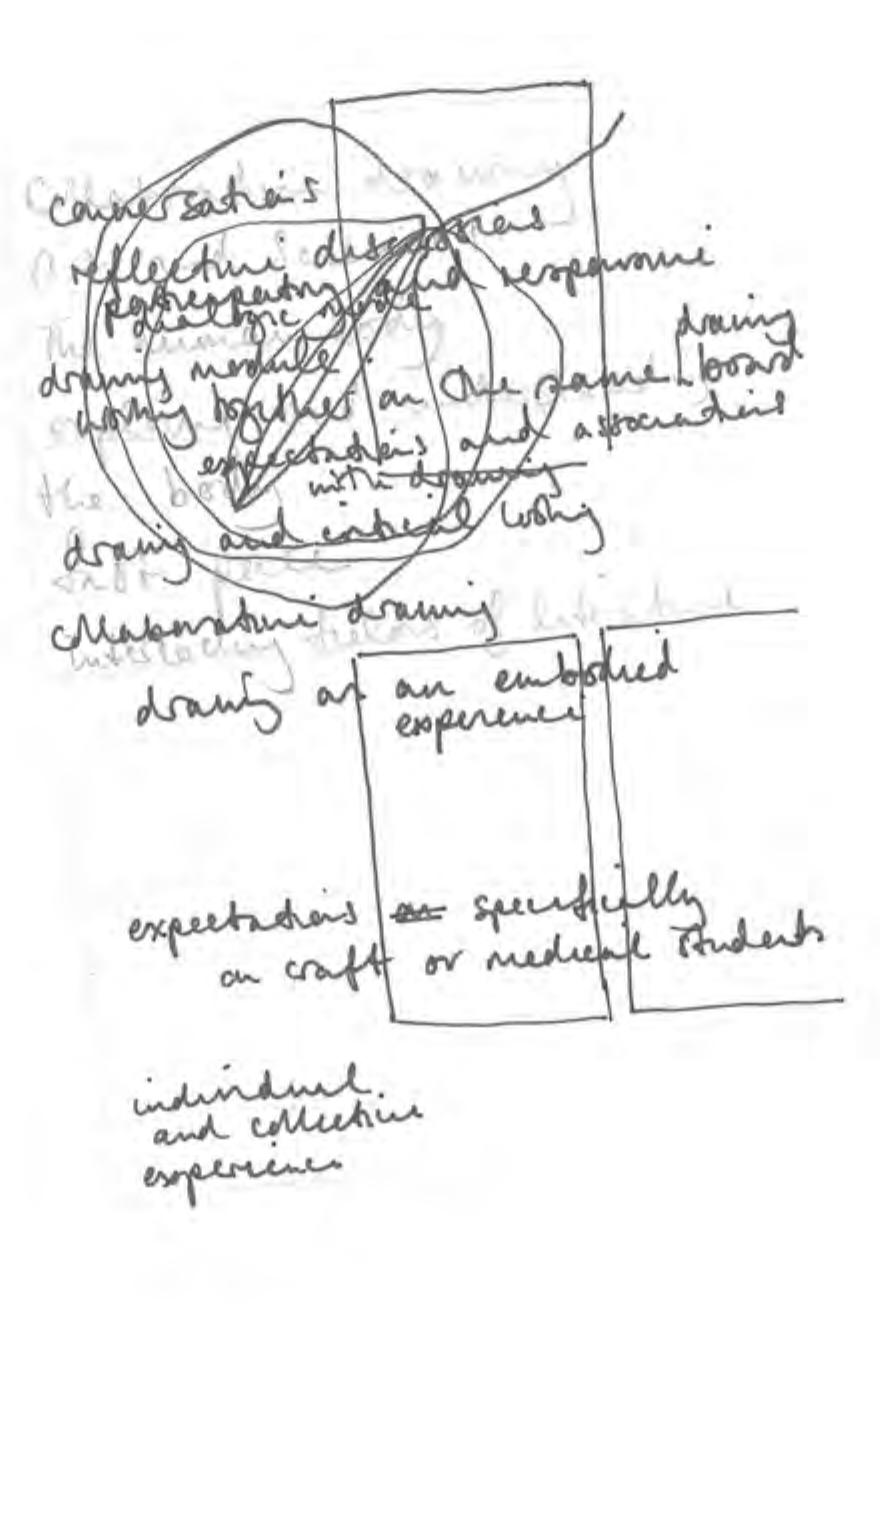 conversations
reflective discussions
and responsive
dialogic mode
drawing module.
drawing
working together on the same board
expectations and associations
with drawing
drawing and critical looking
collaborative drawing
interlocking fields of
drawing as an embodied
experience
expectations on specifically
on craft or medical students
individual
and collective
experiences